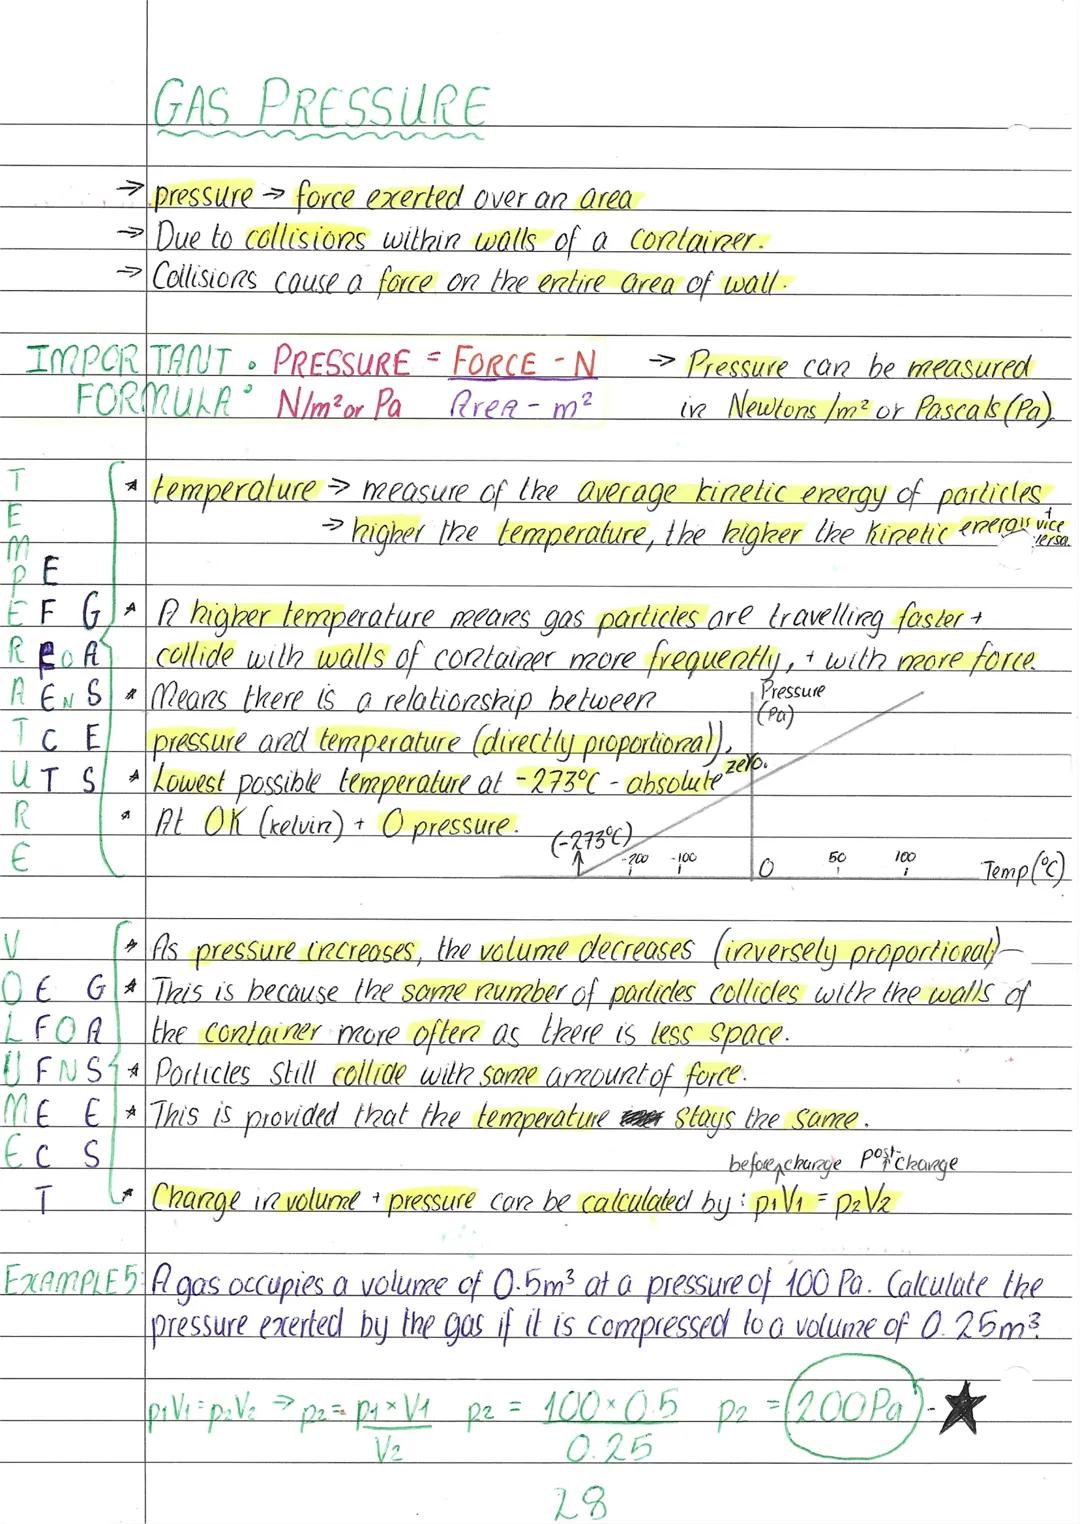 GAS PRESSURE
→ pressure → force exerted over an area
→ Due to collisions within walls of a container.
→ Collisions cause a force on the entire area of wall.
IMPORTANT : PRESSURE = FORCE - N → Pressure can be measured
FORMULA N/m² or Pa Area - m² in Newtons/m² or Pascals (Pa).
TEMPERATURE EFFECT ON GASES
* temperature → measure of the average kinetic energy of particles
→ higher the temperature, the higher the kinetic energy + vice versa.
* A higher temperature means gas particles are travelling faster +
collide with walls of container more frequently, + with more force.
* Means there is a relationship between
pressure and temperature (directly proportional).
* Lowest possible temperature at -273°C - absolute zero.
* At 0K (kelvin) + 0 pressure.
Pressure
(Pa)
(-273°C)
-200 -100 0 50 100 Temp (°C)
VOLUME EFFECT ON GASES
* As pressure increases, the volume decreases (inversely proportional)
* This is because the same number of particles collides with the walls of
the container more often as there is less space.
* Particles still collide with same amount of force.
* This is provided that the temperature stays the same.
before change post-change
* Change in volume + pressure can be calculated by: p₁V₁ = p₂V₂
EXAMPLES: A gas occupies a volume of 0.5m³ at a pressure of 100 Pa. Calculate the
pressure exerted by the gas if it is compressed to a volume of 0.25m³.
p₁V₁ = p₂V₂ → p₂ = p₁ × V₁ p₂ = 100 × 0.5 p₂ = 200Pa
V₂ 0.25
28